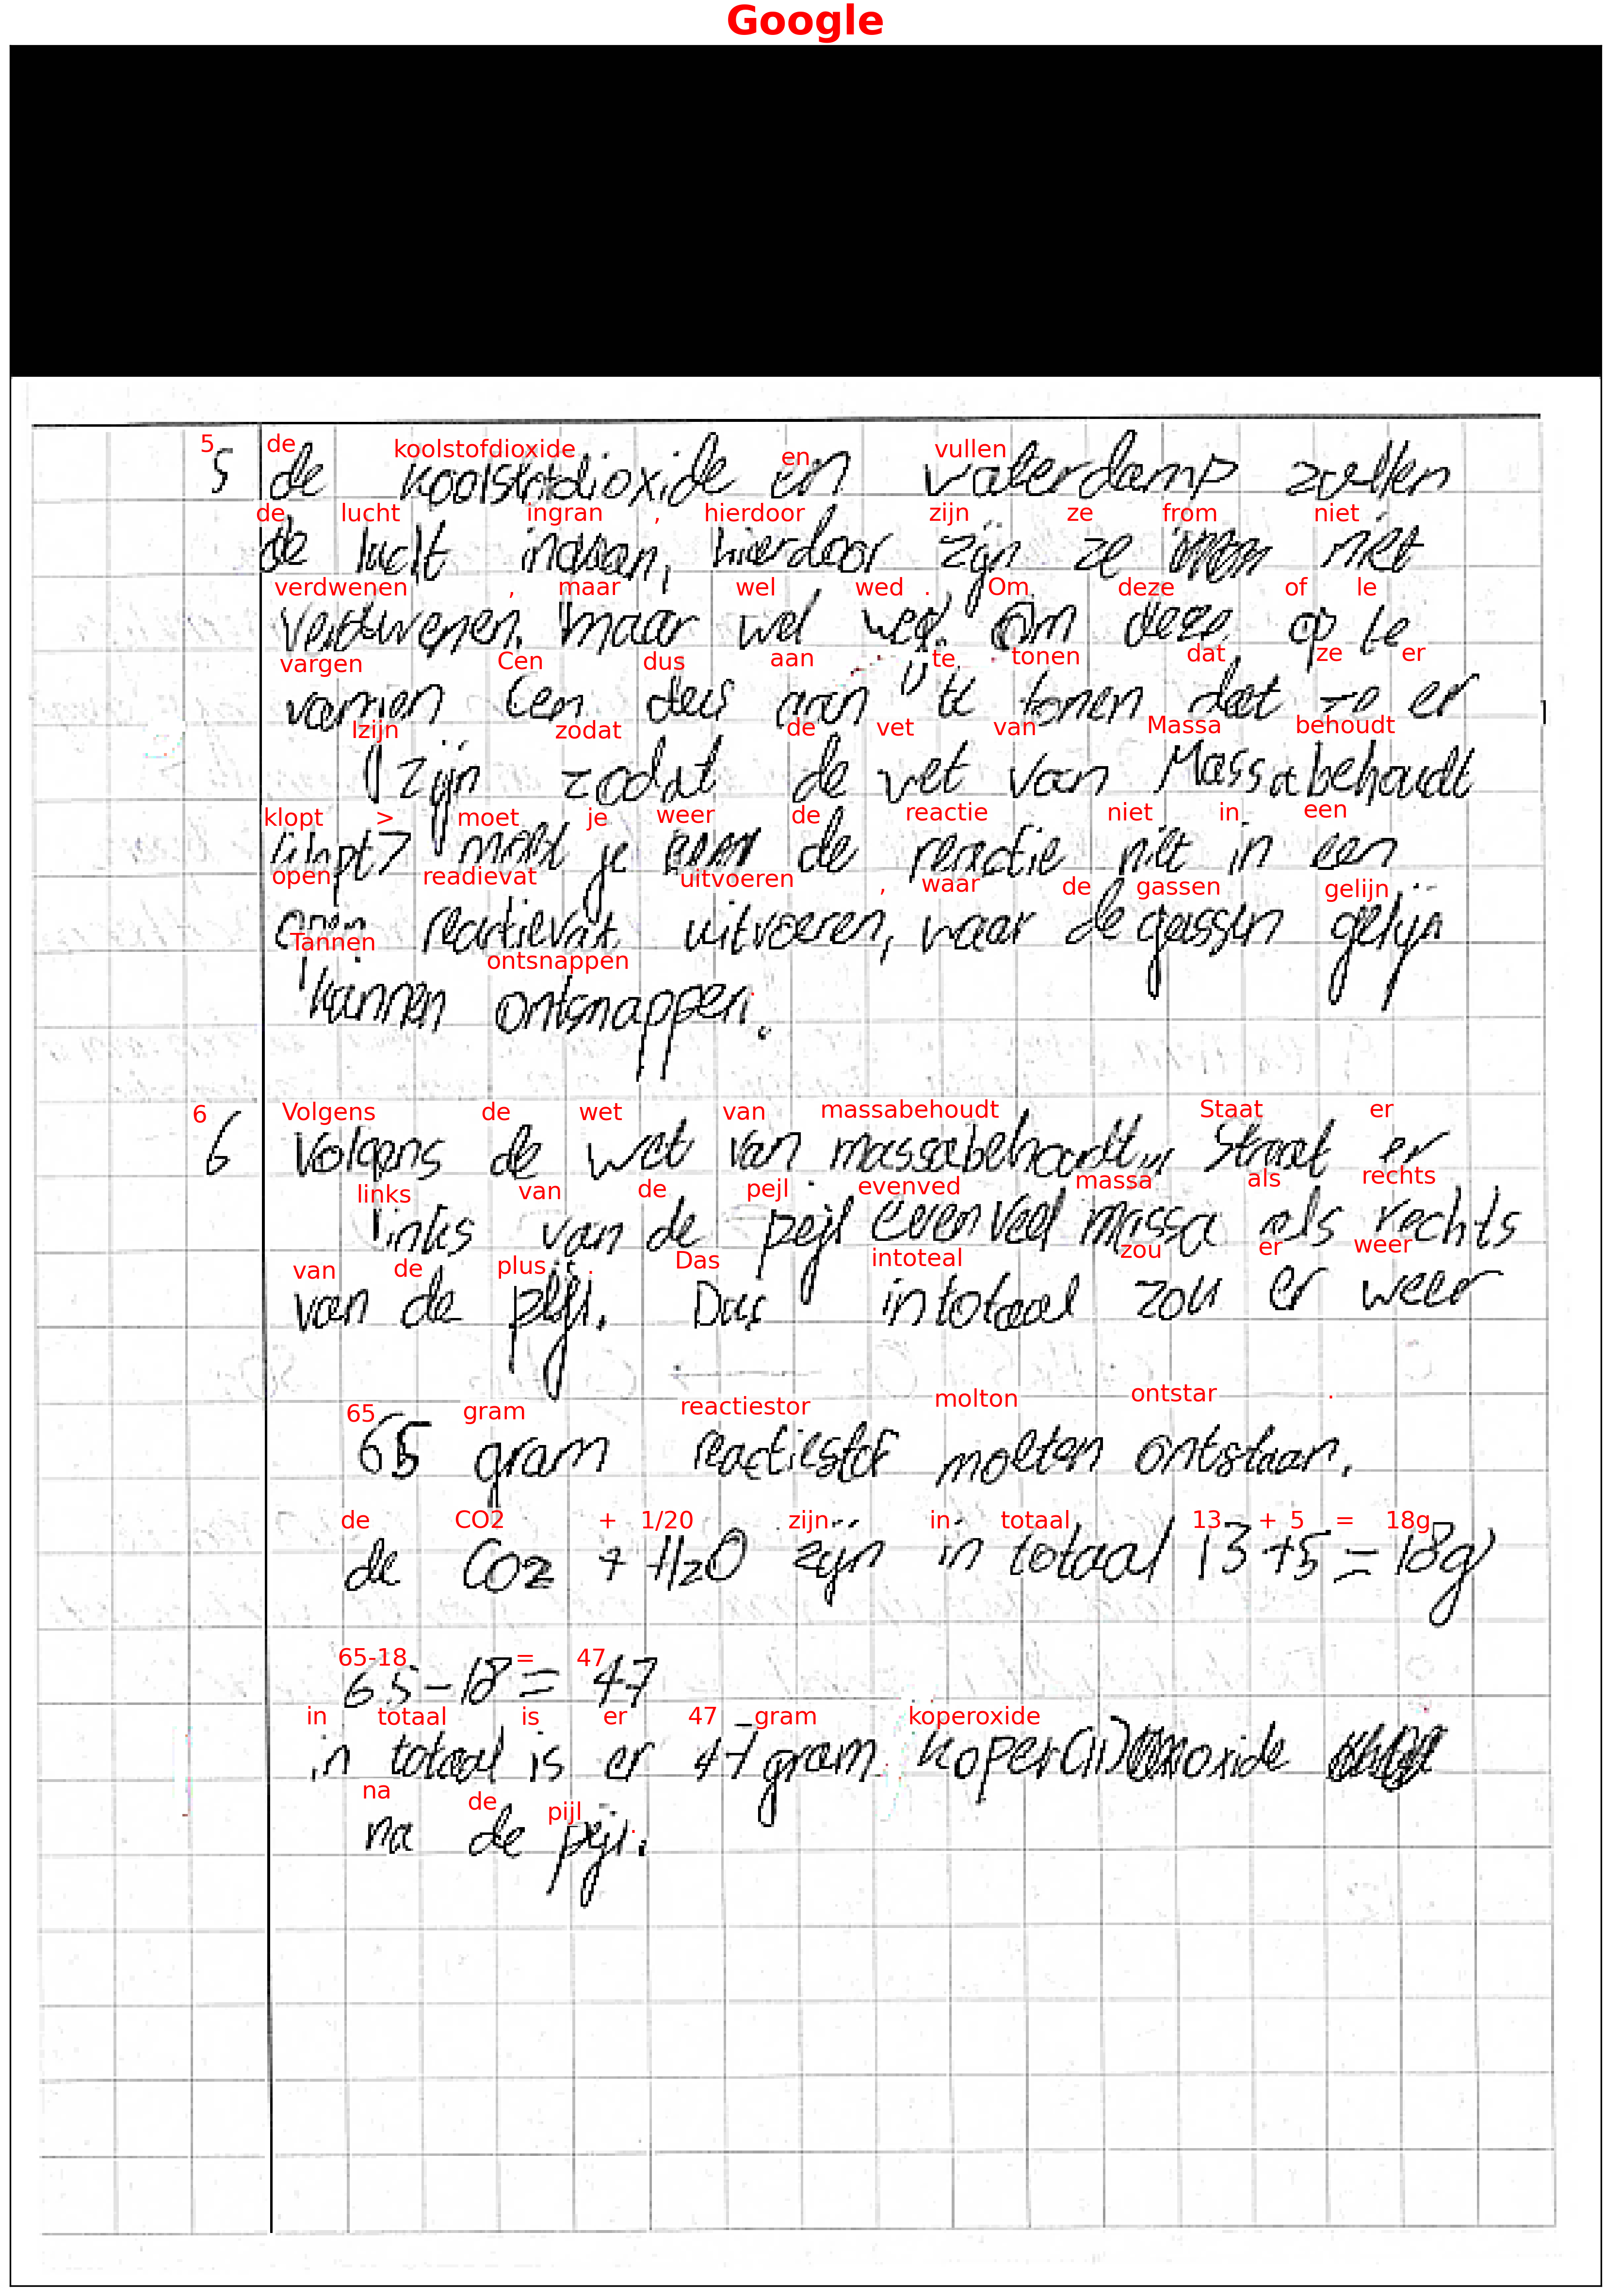 Google
5 de koolstofdioxide en vullen
5 de koolstofdioxide en waterdamp zullen
de lucht ingran , hierdoor zijn ze from niet
de lucht ingaan, hierdoor zijn ze niet
verdwenen , maar wel wed . Om deze of le
verdwenen, maar wel weg. Om deze op te
vargen Cen dus aan te tonen dat ze er
vangen Cen dus aan te tonen dat ze er
lzijn zodat de vet van Massa behoudt
zijn zodat de wet van Massabehoudt
klopt > moet je weer de reactie niet in een
klopt) moet je de reactie niet in een
open readievat uitvoeren , waar de gassen gelijn
open reactievat uitvoeren, waar de gassen gelijn
Tannen ontsnappen .
kunnen ontsnappen.
6 Volgens de wet van massabehoudt Staat er
6 Volgens de wet van massabehoudt Staat er
links van de pejl evenved massa als rechts
links van de pejl evenveel massa als rechts
van de plus . Das intoteal zou er weer
van de pijl. Dus intotaal zou er weer
65 gram reactiestor molton ontstar .
65 gram reactiestof moeten ontstaan.
de CO2 + 1/20 zijn in totaal 13 + 5 = 18g
de CO2 + H2O zijn in totaal 13+5=18g
65-18 = 47
65-18= 47
in totaal is er 47 gram koperoxide
in totaal is er 47 gram koper(II)oxide
na de pijl .
na de pejl.